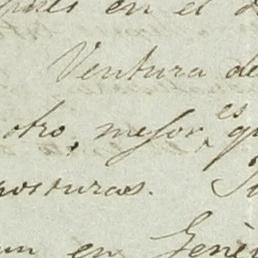 en el
Ventura de
otro, mejor, es
posturas.
en Genè